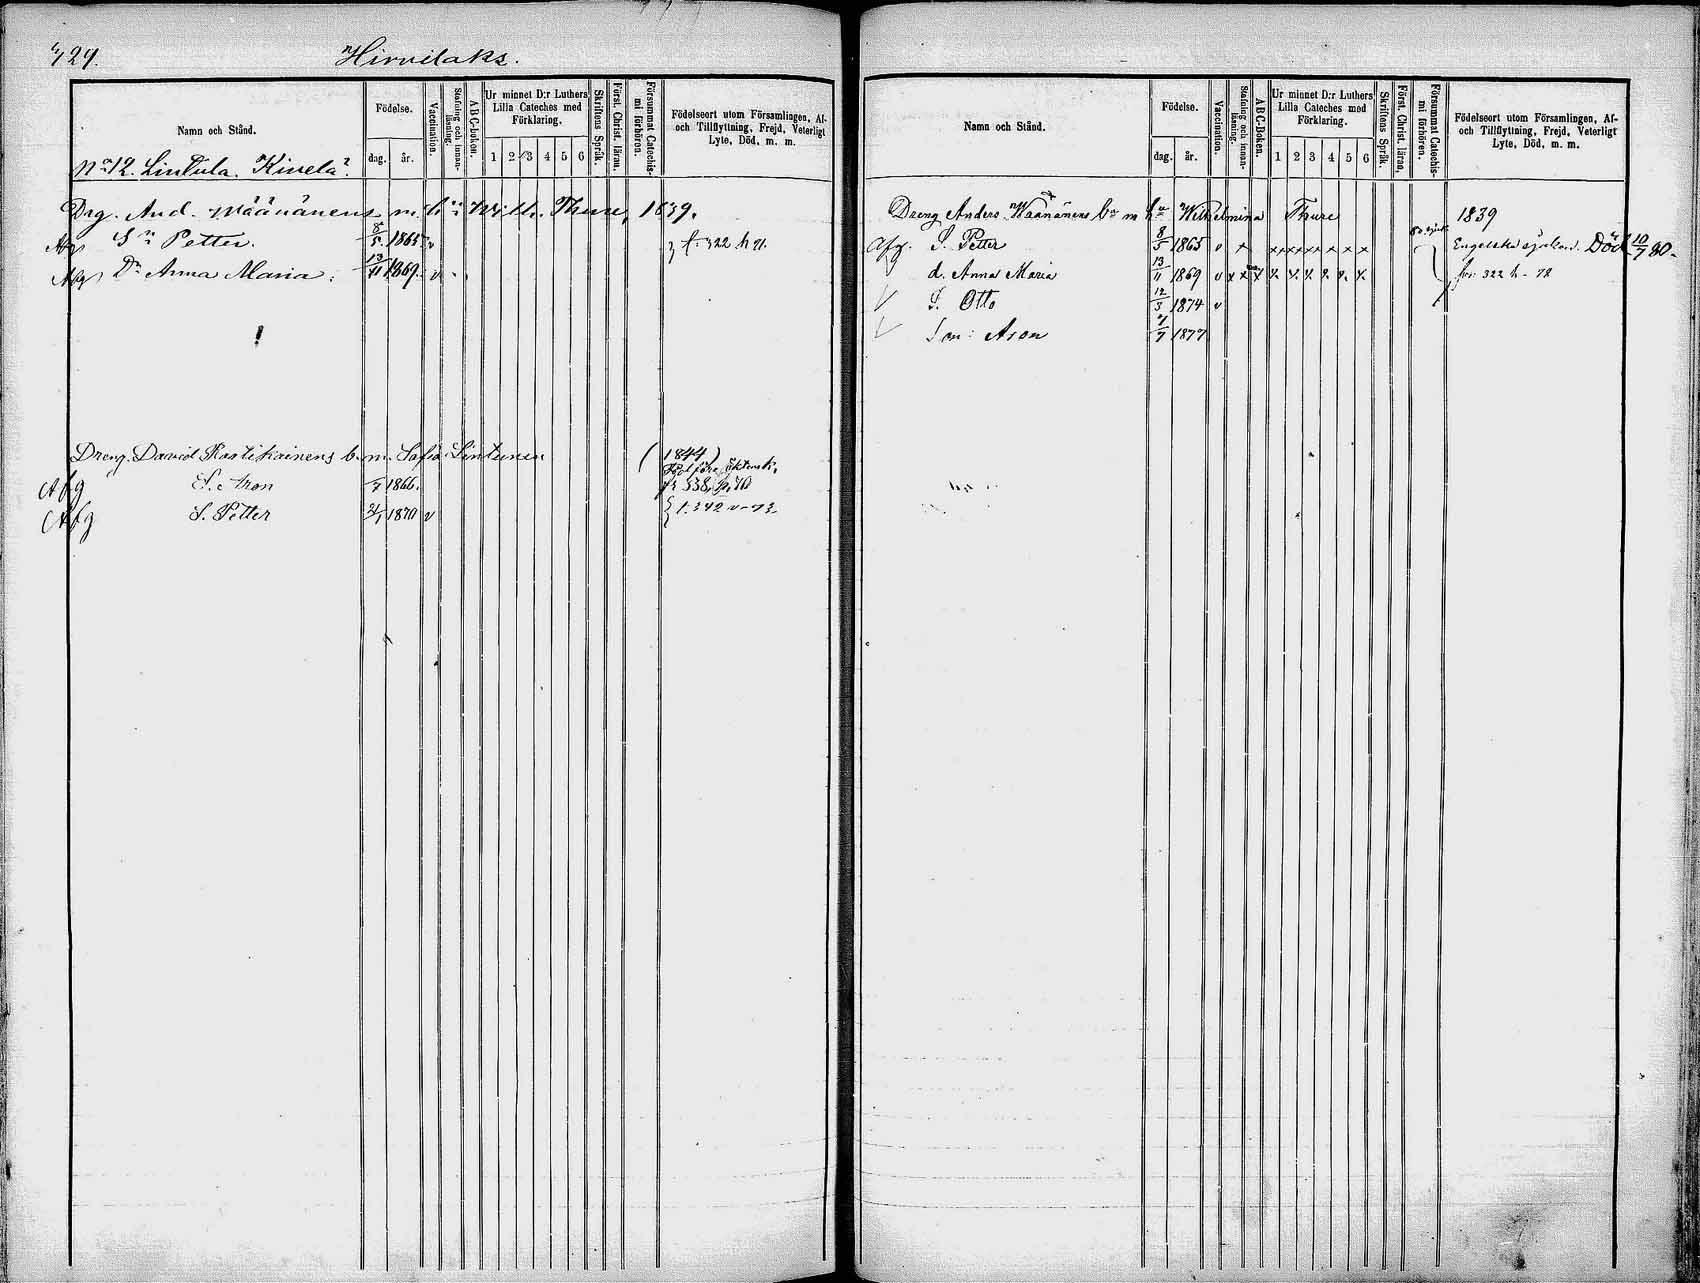 424.
Hirvilaks.
Namn och Stånd.
Födelse.
dag. år.
Vaccination.
Stafning och innanläsning.
ABC-boken.
Ur minnet D:r Luthers Lilla Cateches med Förklaring.
1 2 3 4 5 6
Skriftens Språk.
Först. Christ. läran.
Försummat Catechismi förhören.
Födelseort utom Församlingen, Af- och Tillflyttning, Frejd, Veterligt Lyte, Död, m. m.
No 12. Lintula. Kivelä
Drg. And. Väänänens m. h:u Wilh. Thure, 1839.
Afg S:n Petter. 8/5 1865 v f. 322 h 71.
Afg Dr Anna Maria. 13/11 1869. v
Dreng. David Rastikainens b. m. Sofia Lintunen (1844)
Afg S. Aron 1866. 338
Afg S. Petter 1870 v f. 342 v-73
Namn och Stånd.
Födelse.
dag. år.
Vaccination.
Stafning och innanläsning.
ABC-Boken.
Ur minnet D:r Luthers Lilla Cateches med Förklaring.
1 2 3 4 5 6
Skriftens Språk.
Först. Christ. läran.
Försummat Catechismi förhören.
Födelseort utom Församlingen, Af- och Tillflyttning, Frejd, Veterligt Lyte, Död, m. m.
Dreng Anders Väänänens b:n m h:u Wilhelmina Thure 1839
Afg. S. Petter 8/5 1865 v x x x x x x x x Engelska sjukan. Död 10/7 80.
d. Anna Maria 13/11 1869 v x x x x x x x x x 322 h - 78
S. Otto 12/3 1874 v
Son: Aron 7/7 1877